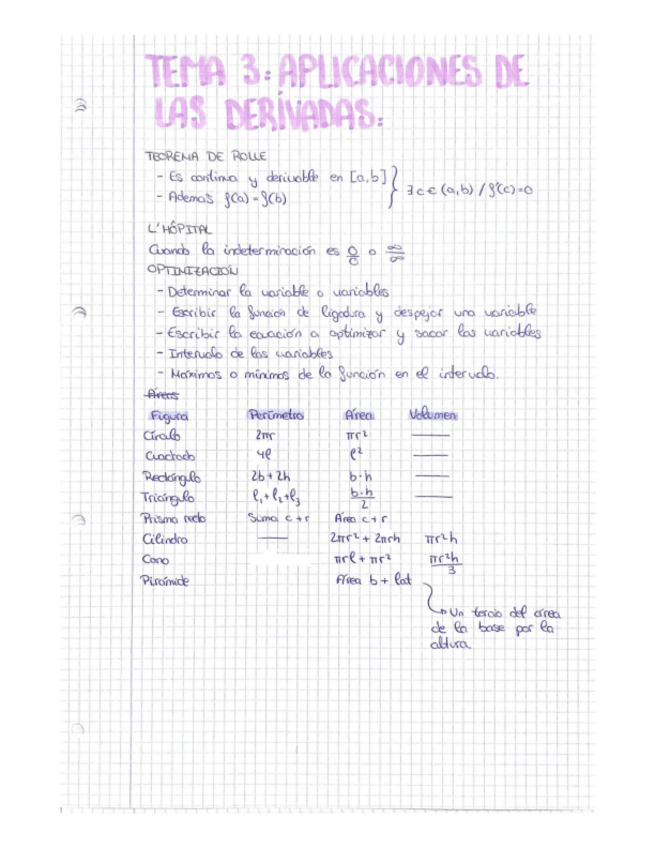 TEMA 3: APLICACIONES DE
LAS DERIVADAS:
TEOREMA DE ROLLE
- Es continua y derivable en [a,b] } ∃ c ∈ (a,b) / f'(c)=0
- Además f(a) = f(b)
L'HÔPITAL
Cuando la indeterminación es 0/0 o ∞/∞
OPTIMIZACIÓN
- Determinar la variable o variables
- Escribir la función de ligadura y despejar una variable
- Escribir la ecuación a optimizar y sacar las variables
- Intervalo de las variables
- Máximos o mínimos de la función en el intervalo.
Áreas
Figura Perímetro Área Volumen
Círculo 2πr πr² —
Cuadrado 4l l² —
Rectángulo 2b+2h b·h —
Triángulo l₁+l₂+l₃ b·h/2 —
Prisma recto Suma c+r Área c+r
Cilindro — 2πr² + 2πrh πr²h
Cono πrl + πr² πr²h/3
Pirámide Área b + lat
Un tercio del área
de la base por la
altura.